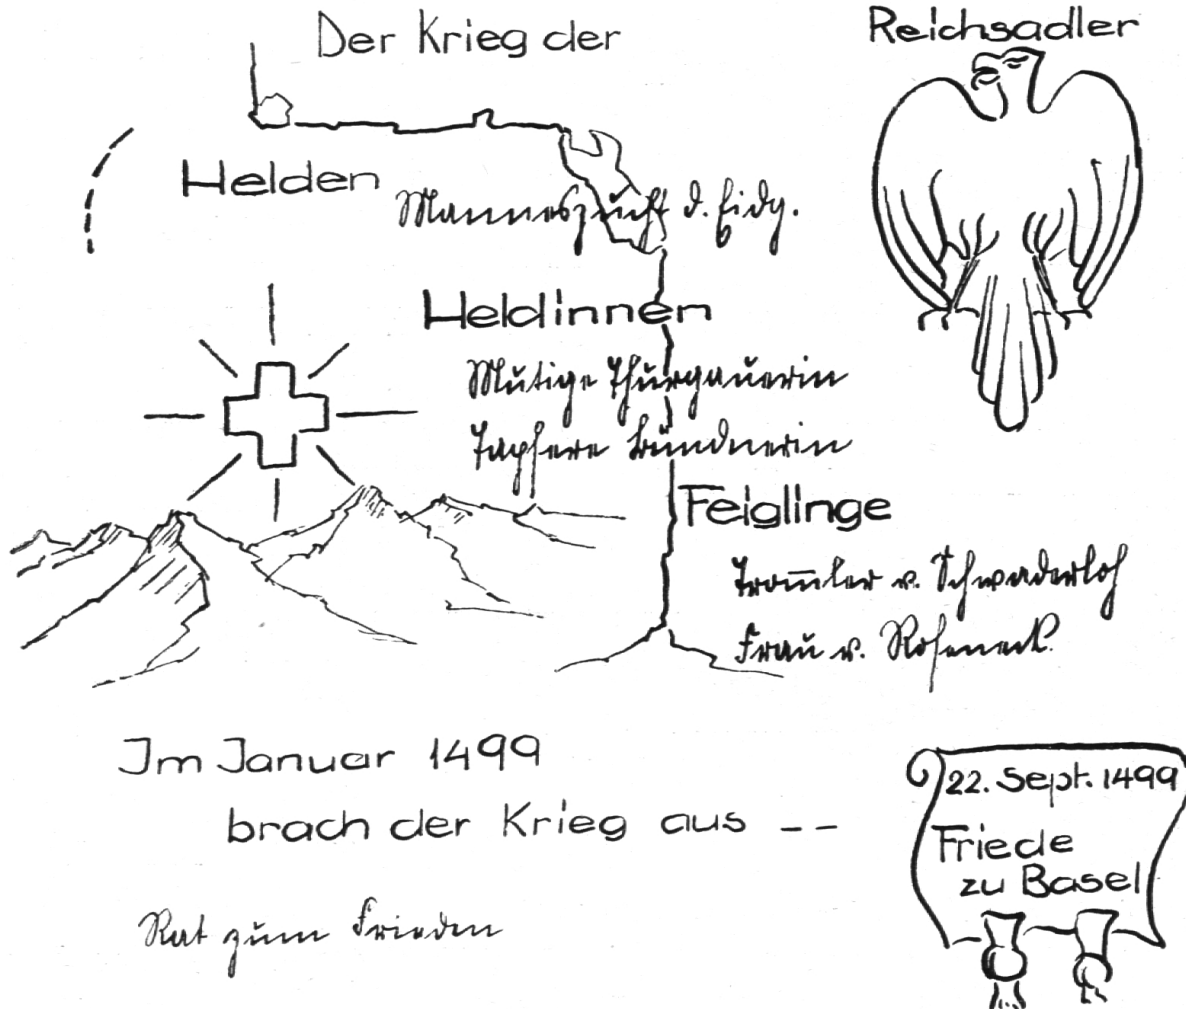 Der Krieg der
Reichsadler
Helden
Manneszucht d. Eidg.
Heldinnen
Mutige Thurgauerin
Tapfere Bündnerin
Feiglinge
Trom̅ler v. Schwaderloh
Frau v. Roseneck
Im Januar 1499
brach der Krieg aus --
Rat zum Frieden
22. Sept. 1499
Friede
zu Basel